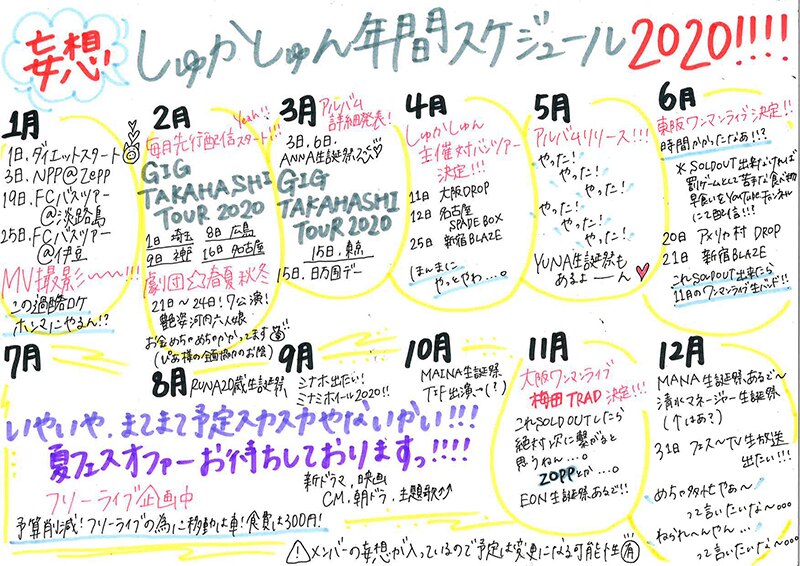 妄想
しゅかしゅん年間スケジュール2020!!!!
1月
1日、ダイエットスタート
3日、NPP@Zepp
19日、FCバスツアー
@淡路島
25日、FCバスツアー
@伊豆
MV撮影〜〜!!!
この過酷ロケ
ホンマにやるん!?
2月
Yeah!!
毎月先行配信スタート!!!
GIG
TAKAHASHI
TOUR 2020
1日 埼玉 8日 広島
9日 神戸 16日 名古屋
劇団☆春夏秋冬
21日〜24日!7公演!
艶姿河内六人娘
お金めちゃめちゃかかってます
(ぴあ様の全面協力のお陰)
3月
アルバム
詳細発表!
3日、6日、
ANNA生誕祭
GIG
TAKAHASHI
TOUR 2020
15日、東京
15日、日万国デー
4月
しゅかしゅん
主催対バンツアー
決定!!!
11日 大阪DROP
12日 名古屋
SPADE BOX
25日 新宿BLAZE
ほんまに
やっとやわ....。
5月
アルバムリリース!!!
やった!
やった!
やった!
やった!
やった!
YUNA生誕祭も
あるよーーん
6月
東阪ワンマンライブ決定!!
時間かかったなぁ!!?
※SOLDOUT出来なければ
罰ゲームとして苦手な食べ物
早食いをYouTubeチャンネル
にて配信!!!
20日 アメリカ村 DROP
21日 新宿BLAZE
これSOLD OUT出来たら
11月のワンマンライブ生バンド!!
7月
8月
RUNA20歳生誕祭
9月
ミナホ出たい!
ミナミホイール2020!!
10月
MAINA生誕祭
TIF出演→(?)
いやいや、まてまて予定スカスカやないかい!!!
夏フェスオファーお待ちしておりますっ!!!!
フリーライブ企画中
予算削減!フリーライブの為に移動は車!食費は300円!
新ドラマ、映画
CM、朝ドラ、主題歌♪
11月
大阪ワンマンライブ
梅田TRAD 決定!!!
これSOLD OUTしたら
絶対次に繋がると
思うねん...。
ZOPPとか...。
EON生誕祭あるで!!
12月
MANA生誕祭、あるで〜
清水マネージャー生誕祭
(↑はぁ?)
31日 フェス〜TV生放送
出たい!!!
めちゃ多忙やぁ〜
って言いたいな〜...
ねられへんやん...
って言いたいな〜...
⚠メンバーの妄想が入っているので予定は変更になる可能性有